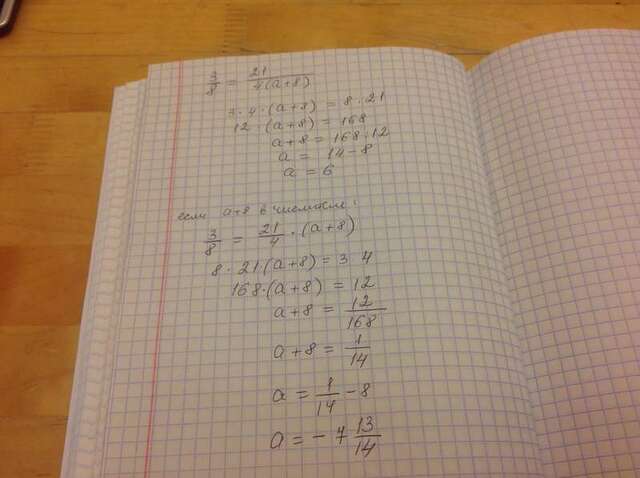 3/8 = 21/4(a+8)
3·4·(a+8) = 8·21
12·(a+8) = 168
a+8 = 168:12
a = 14-8
a = 6
если a+8 в числителе:
3/8 = 21/4·(a+8)
8·21·(a+8) = 3 4
168·(a+8) = 12
a+8 = 12/168
a+8 = 1/14
a = 1/14 - 8
a = -7 13/14